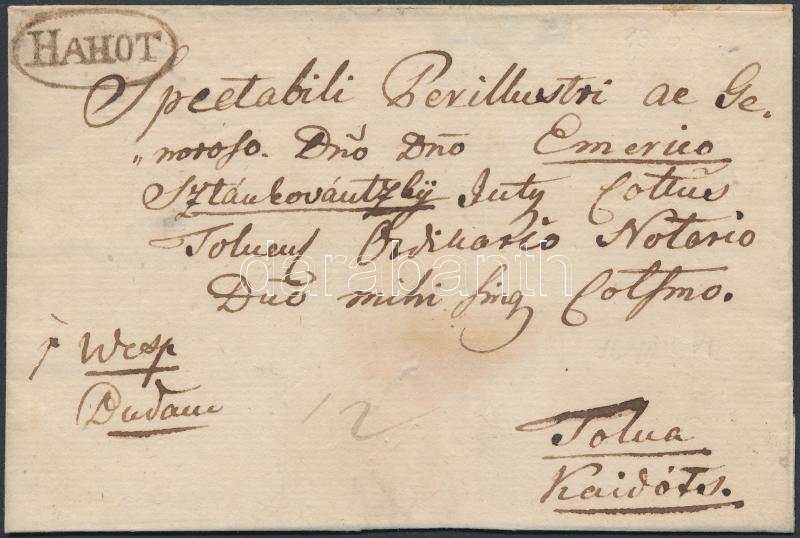 HAHOT
Spectabili Perillustri ac Ge„
„noroso. Dn̄o Dn̄o Emerico
Sztánkovántzky Inty Cottūs
Tolnens Ordinario Notario
Dn̄o mihi sing Cotsmo.
darabanth
p Wesp
Dudam
12
Tolna
Kaidóts.